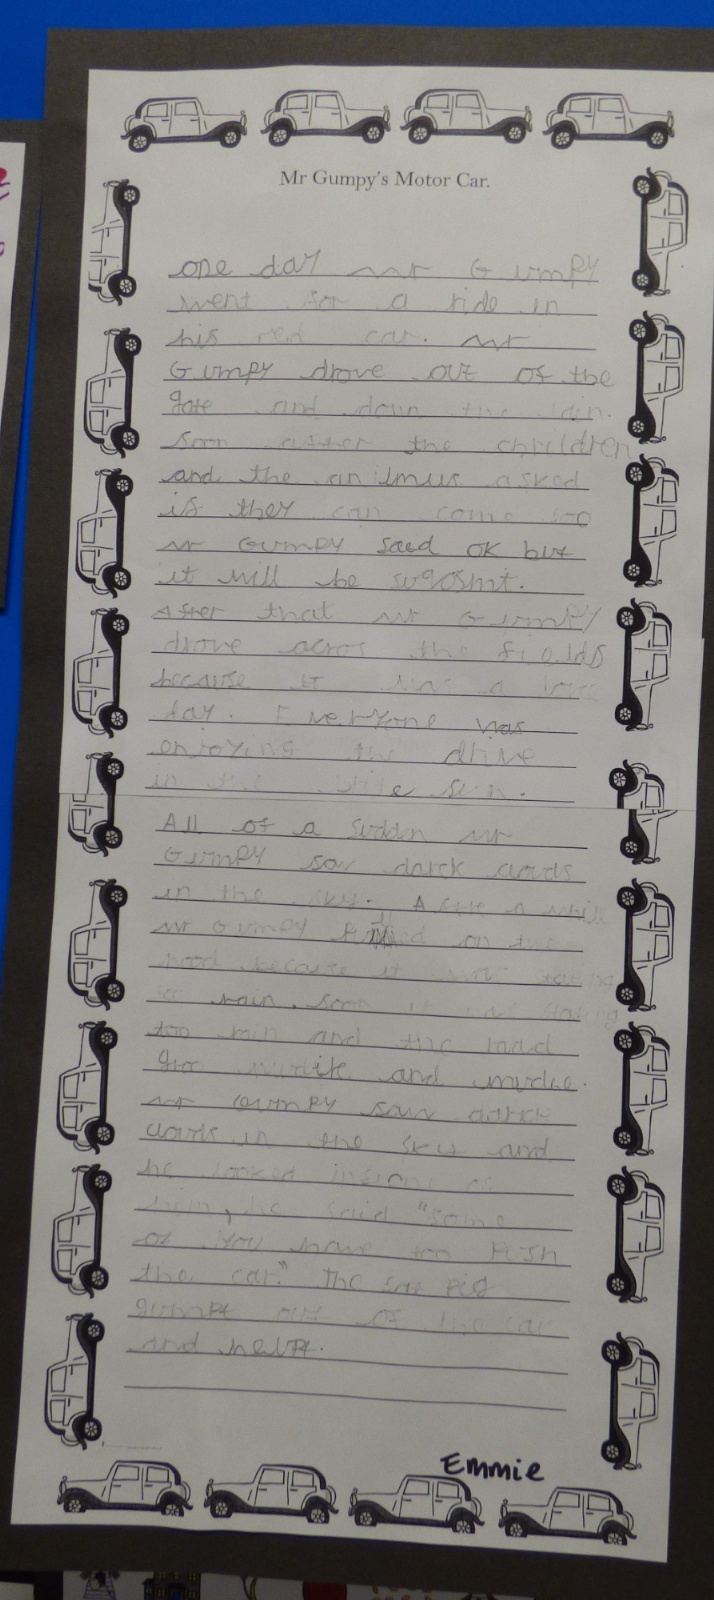 Mr Gumpy's Motor Car.
one day mr Gumpy
went for a ride in
his red car. mr
Gumpy drove out of the
gate and down the lain.
soon after the chrildren
and the anilmus asked
if they can come too
mr Gumpy saed ok but
it will be sqosht.
After that mr Gumpy
drove acros the fields
because it was a
day. Everyone was
enjoying the drive
in the brite sun.
All of a suddn mr
Gumpy saw darck clouds
in the sky. A
mr Gumpy on the
hood because it was
to rain. Soon it was
too rain and the
and
mr Gumpy saw darck
clouds in the sky and
he looked of
him, he said "some
of you have too push
the car." The pig
gumpt out of the car
and helpt.
Emmie